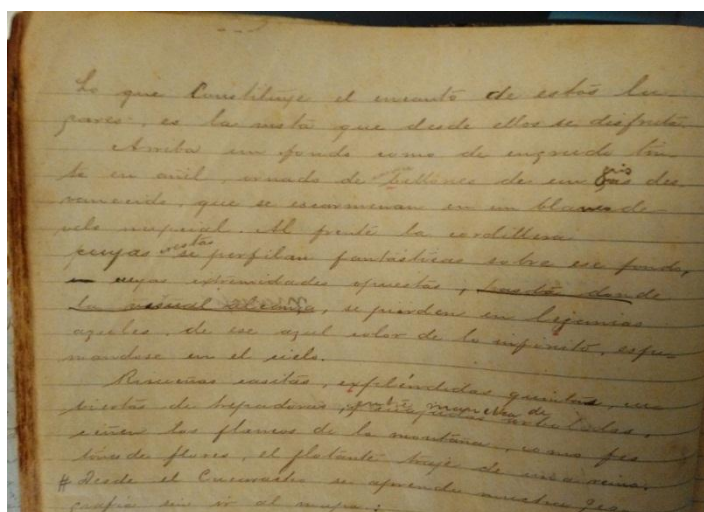 Lo que Constituye el encanto de estos lu-
gares, es la vista que desde ellos se disfruta.
Arriba un fondo como de engrudo tin
to en añil, ornado de vellones de un gris des
vanecido, que se escarmenan en un blanco de
velo nupcial. Al frente la cordillera
cuyas crestas se perfilan fantásticas sobre ese fondo,
cuyas extremidades opuestas, hasta donde
la visual alcanza, se pierden en lejanías
azules, de ese azul color de lo infinito, esfu-
mandose en el cielo.
Risueñas casitas, expléndidas quintas, cu
biertas de trepadoras, entre manchas de arboledas,
ciñen los flancos de la montaña, como fes
tones de flores, el flotante traje de una reina.
# Desde el Cucuracho se aprende nuestra geo
grafía sin ir al mapa: